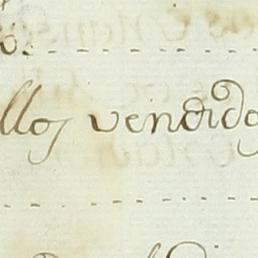 o.
llos vendido